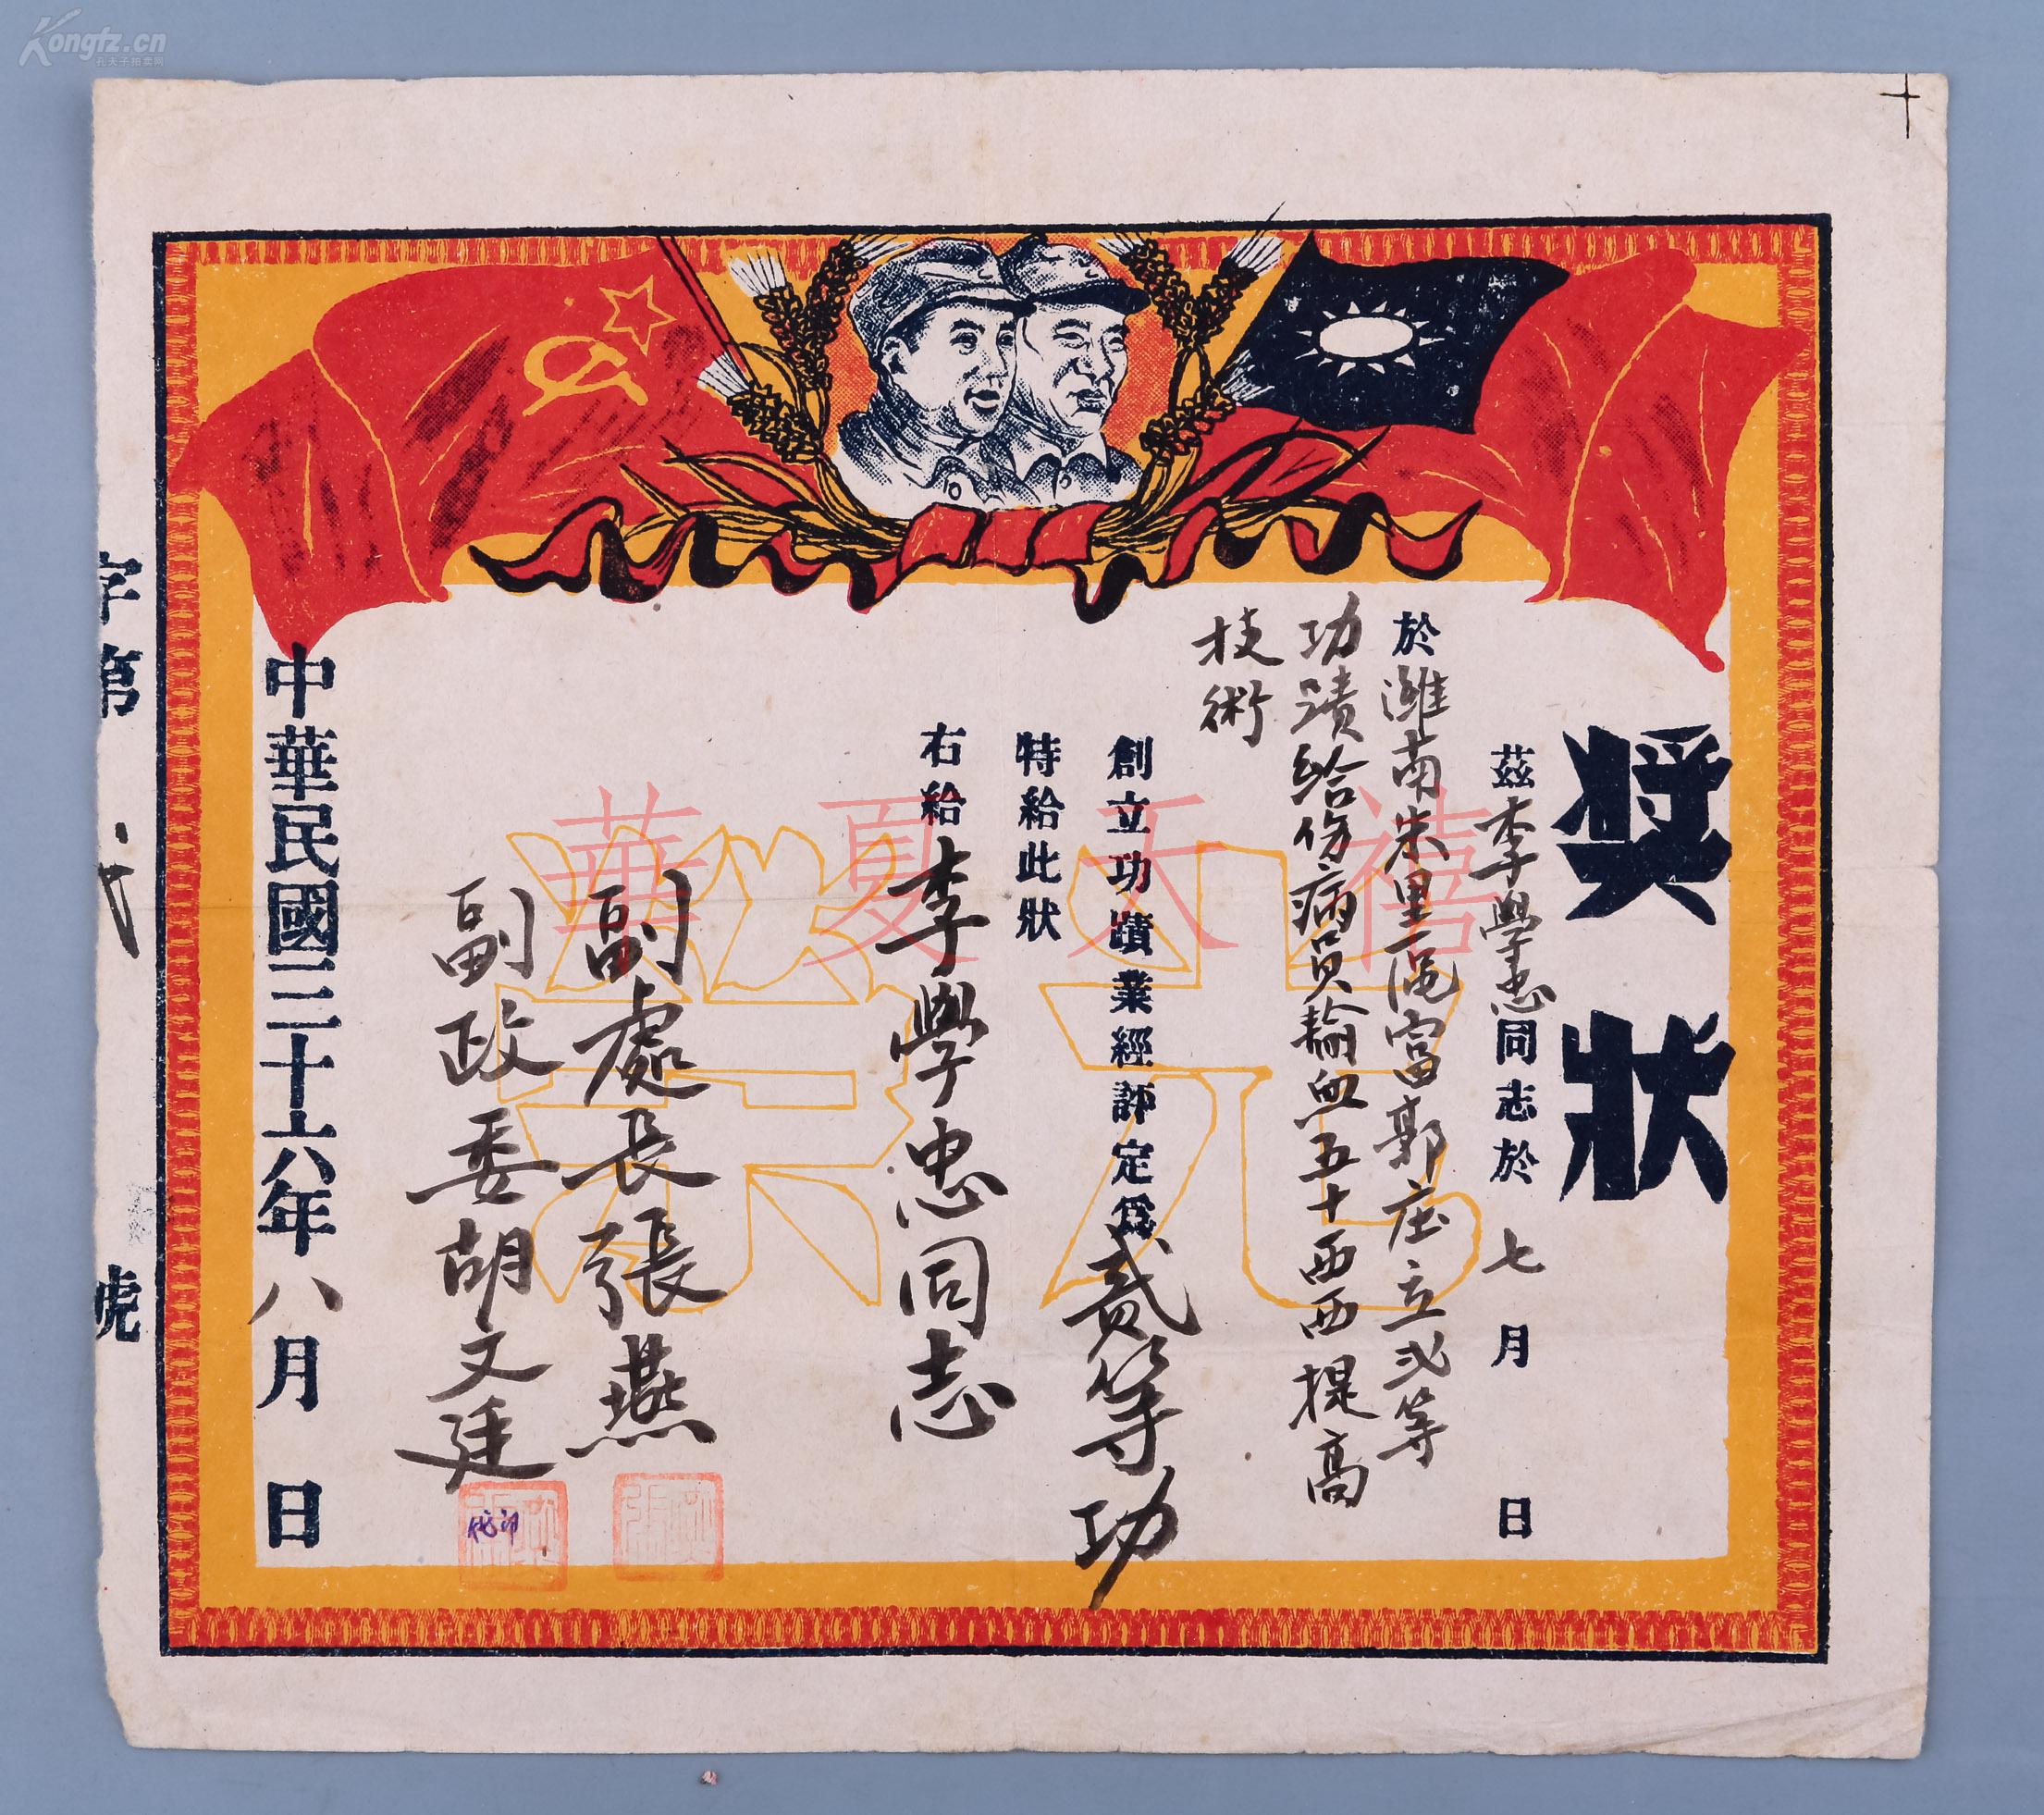 獎狀
茲李學忠同志於七月 日
於濰南朱里 富郭庄立弍等
功蹟給伤病员輸血五十西西提高
技術
創立功蹟業經評定爲貳等功
特給此狀
右給李學忠同志
副處長張燕
副政委胡文廷
代印
中華民國三十六年八月 日
字第 號
光榮
華夏天禧
Kongfz.cn
孔夫子拍卖网